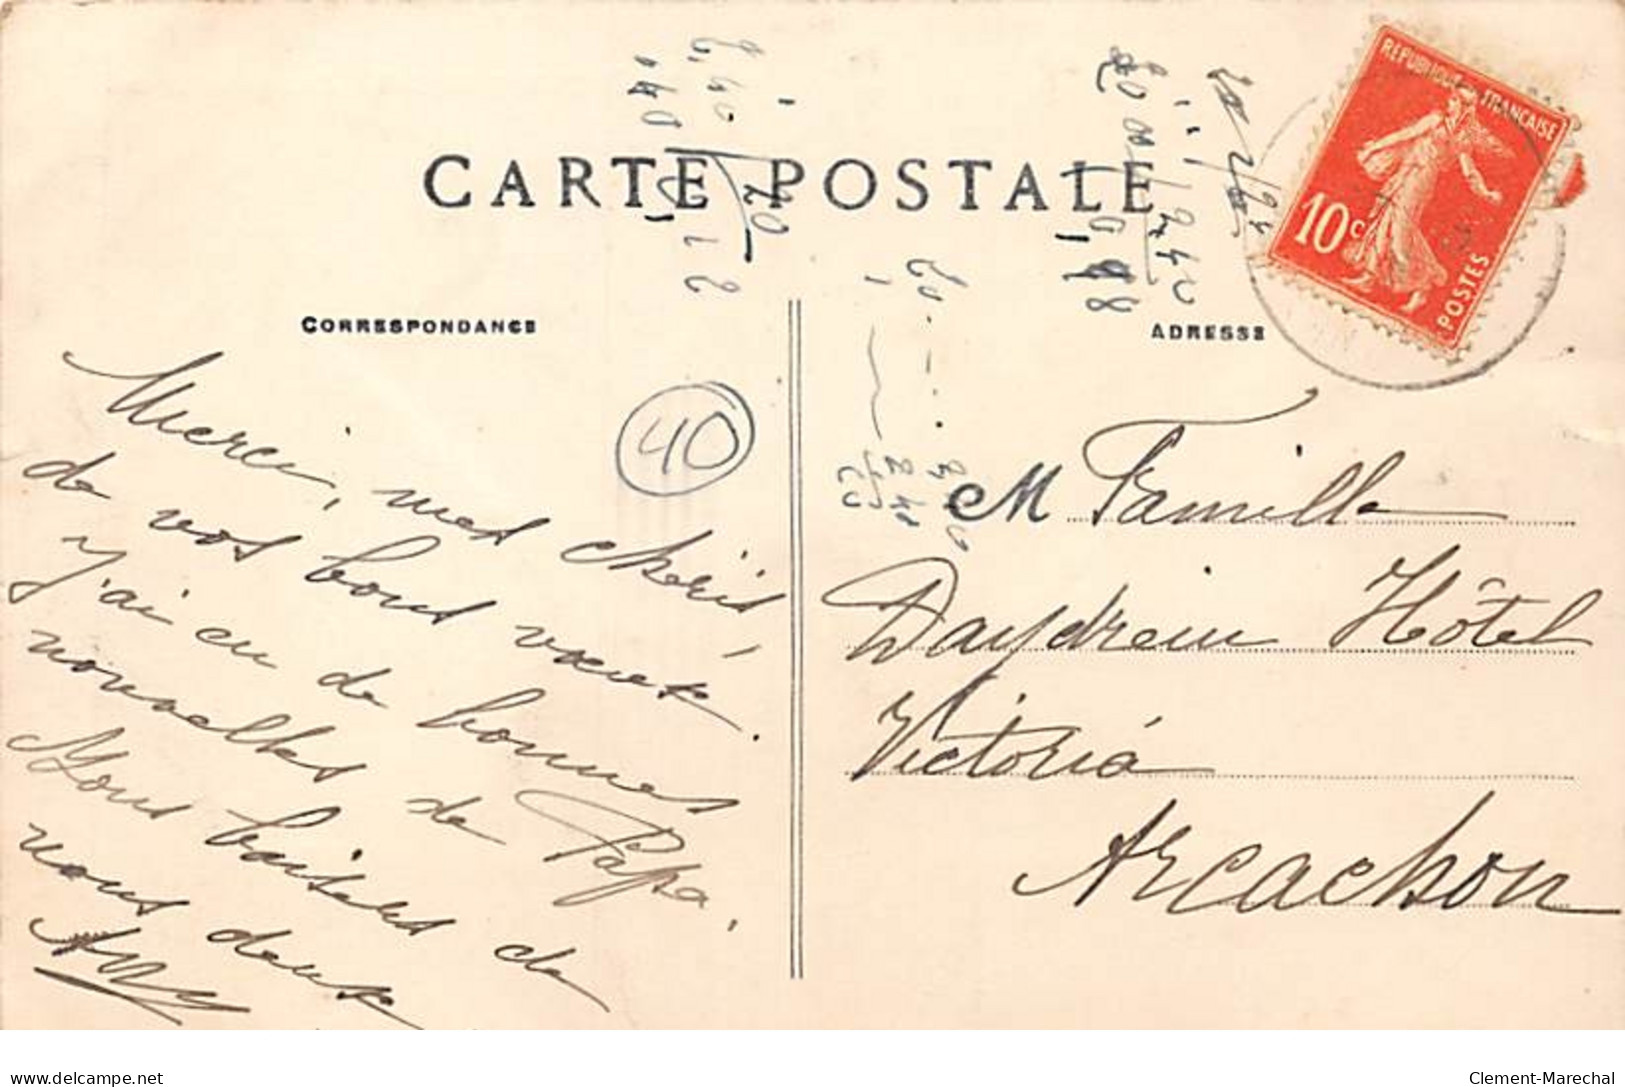 CARTE POSTALE
CORRESPONDANCE
ADRESSE
RÉPUBLIQUE FRANÇAISE
10c
POSTES
40
Merci, mes chéris,
de vos bons vœux.
J'ai eu de bonnes
nouvelles de Papa.
Bons baisers de
nous deux
M Famille
Daydrein Hôtel
Victoria
Arcachon
delcampe.net
Clement-Marechal